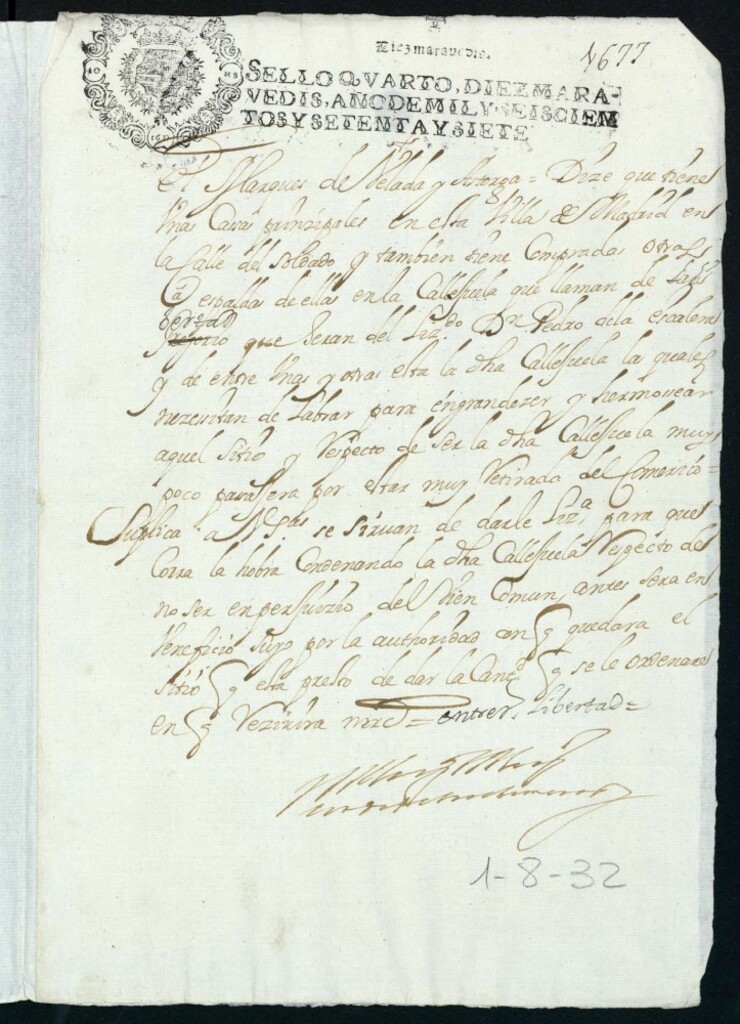 Diez maravedis.
1677
SELLO QVARTO, DIEZ MARA-
VEDIS, AÑO DE MIL Y SEISCIEN
TOS Y SETENTA Y SIETE
El Marques de Velada y Astorga = Dize que tiene
Unas Casas prinzipales en esta Villa de Madrid en
la Calle del soldado y tambien tiene Compradas otras
a espaldas de ellas en la Callejuela que llaman de
libertad
que seran del Lizdo Dn Pedro de la escalera
y de entre Unas y otras esta la dha Callejuela las quales
nezesitan de Labrar para engrandezer y hermosear
aquel sitio y Respecto de ser la dha Callejuela muy
poco pasajera por estar muy Retirada del Comerzio =
Suplica a se siruan de darle Liza para que
Corra la hobra Cordenando la dha Callejuela Respecto de
no ser en perjuizio del bien Comun, antes sera en
beneficio suyo por la authoridad con q quedara el
sitio y q esta presto de dar la q se le ordenare
en q Rezivira mrd = entre Rs libertad =
1-8-32